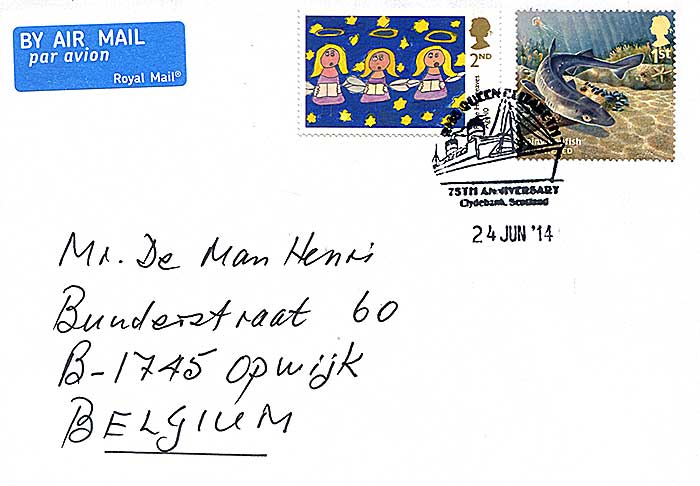 BY AIR MAIL
par avion
Royal Mail®
2ND
1st
RMS QUEEN ELIZABETH
75TH ANNIVERSARY
Clydebank, Scotland
24 JUN '14
Mr. De Man Henri
Bunderstraat 60
B-1745 Opwijk
BELGIUM